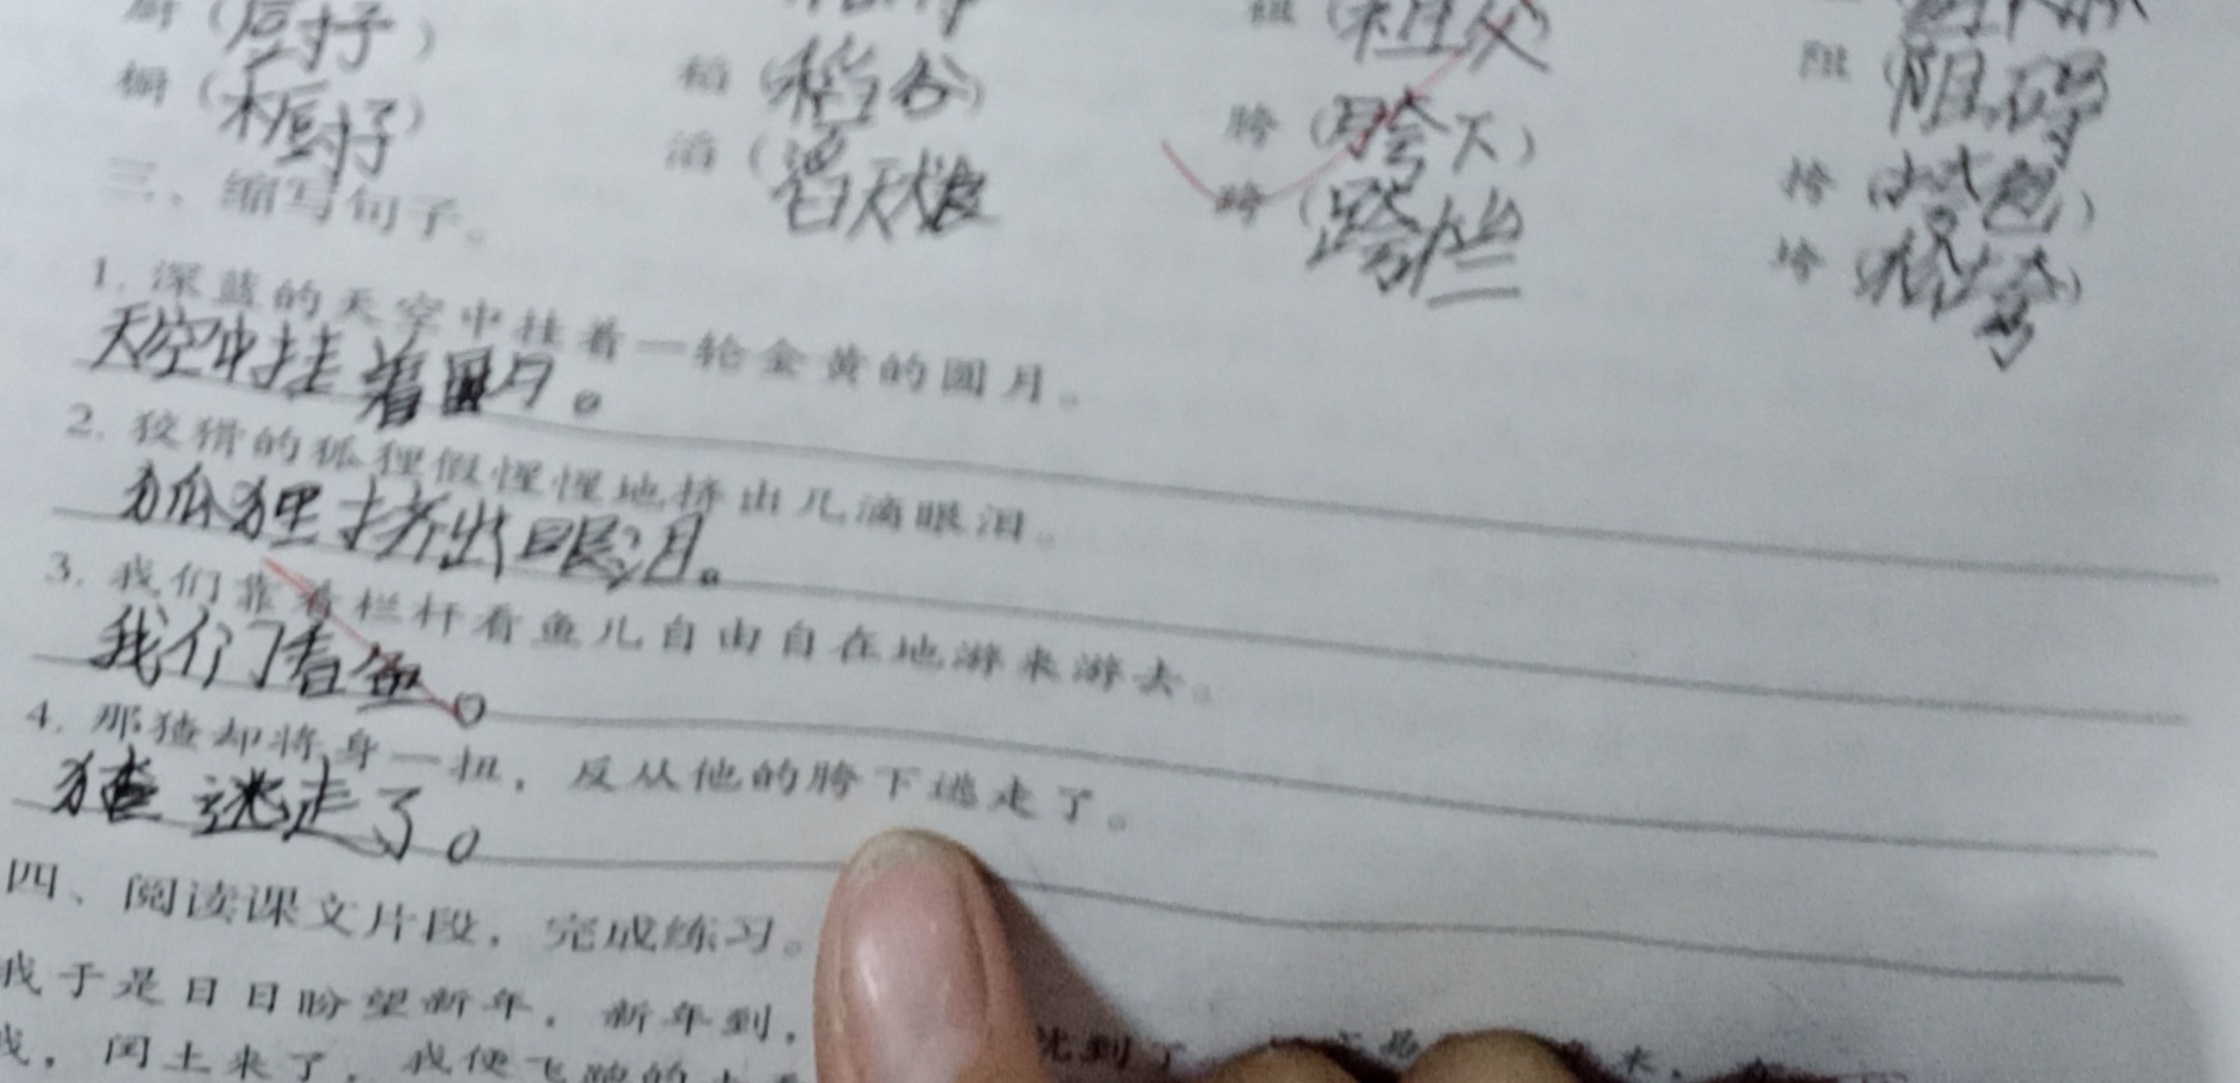 厨（厨子）
橱（橱子） 稻（稻谷） 胯（胯下） 阻（阻碍）
滔（滔天大浪） 跨（跨栏）
三、缩写句子。
1. 深蓝的天空中挂着一轮金黄的圆月。
天空中挂着圆月。
2. 狡猾的狐狸假惺惺地挤出几滴眼泪。
狐狸挤出眼泪。
3. 我们靠着栏杆看鱼儿自由自在地游来游去。
我们看鱼。
4. 那猹却将身一扭，反从他的胯下逃走了。
猹逃走了。
四、阅读课文片段，完成练习。
我于是日日盼望新年，新年到，
我，闰土来了，我便飞跑的